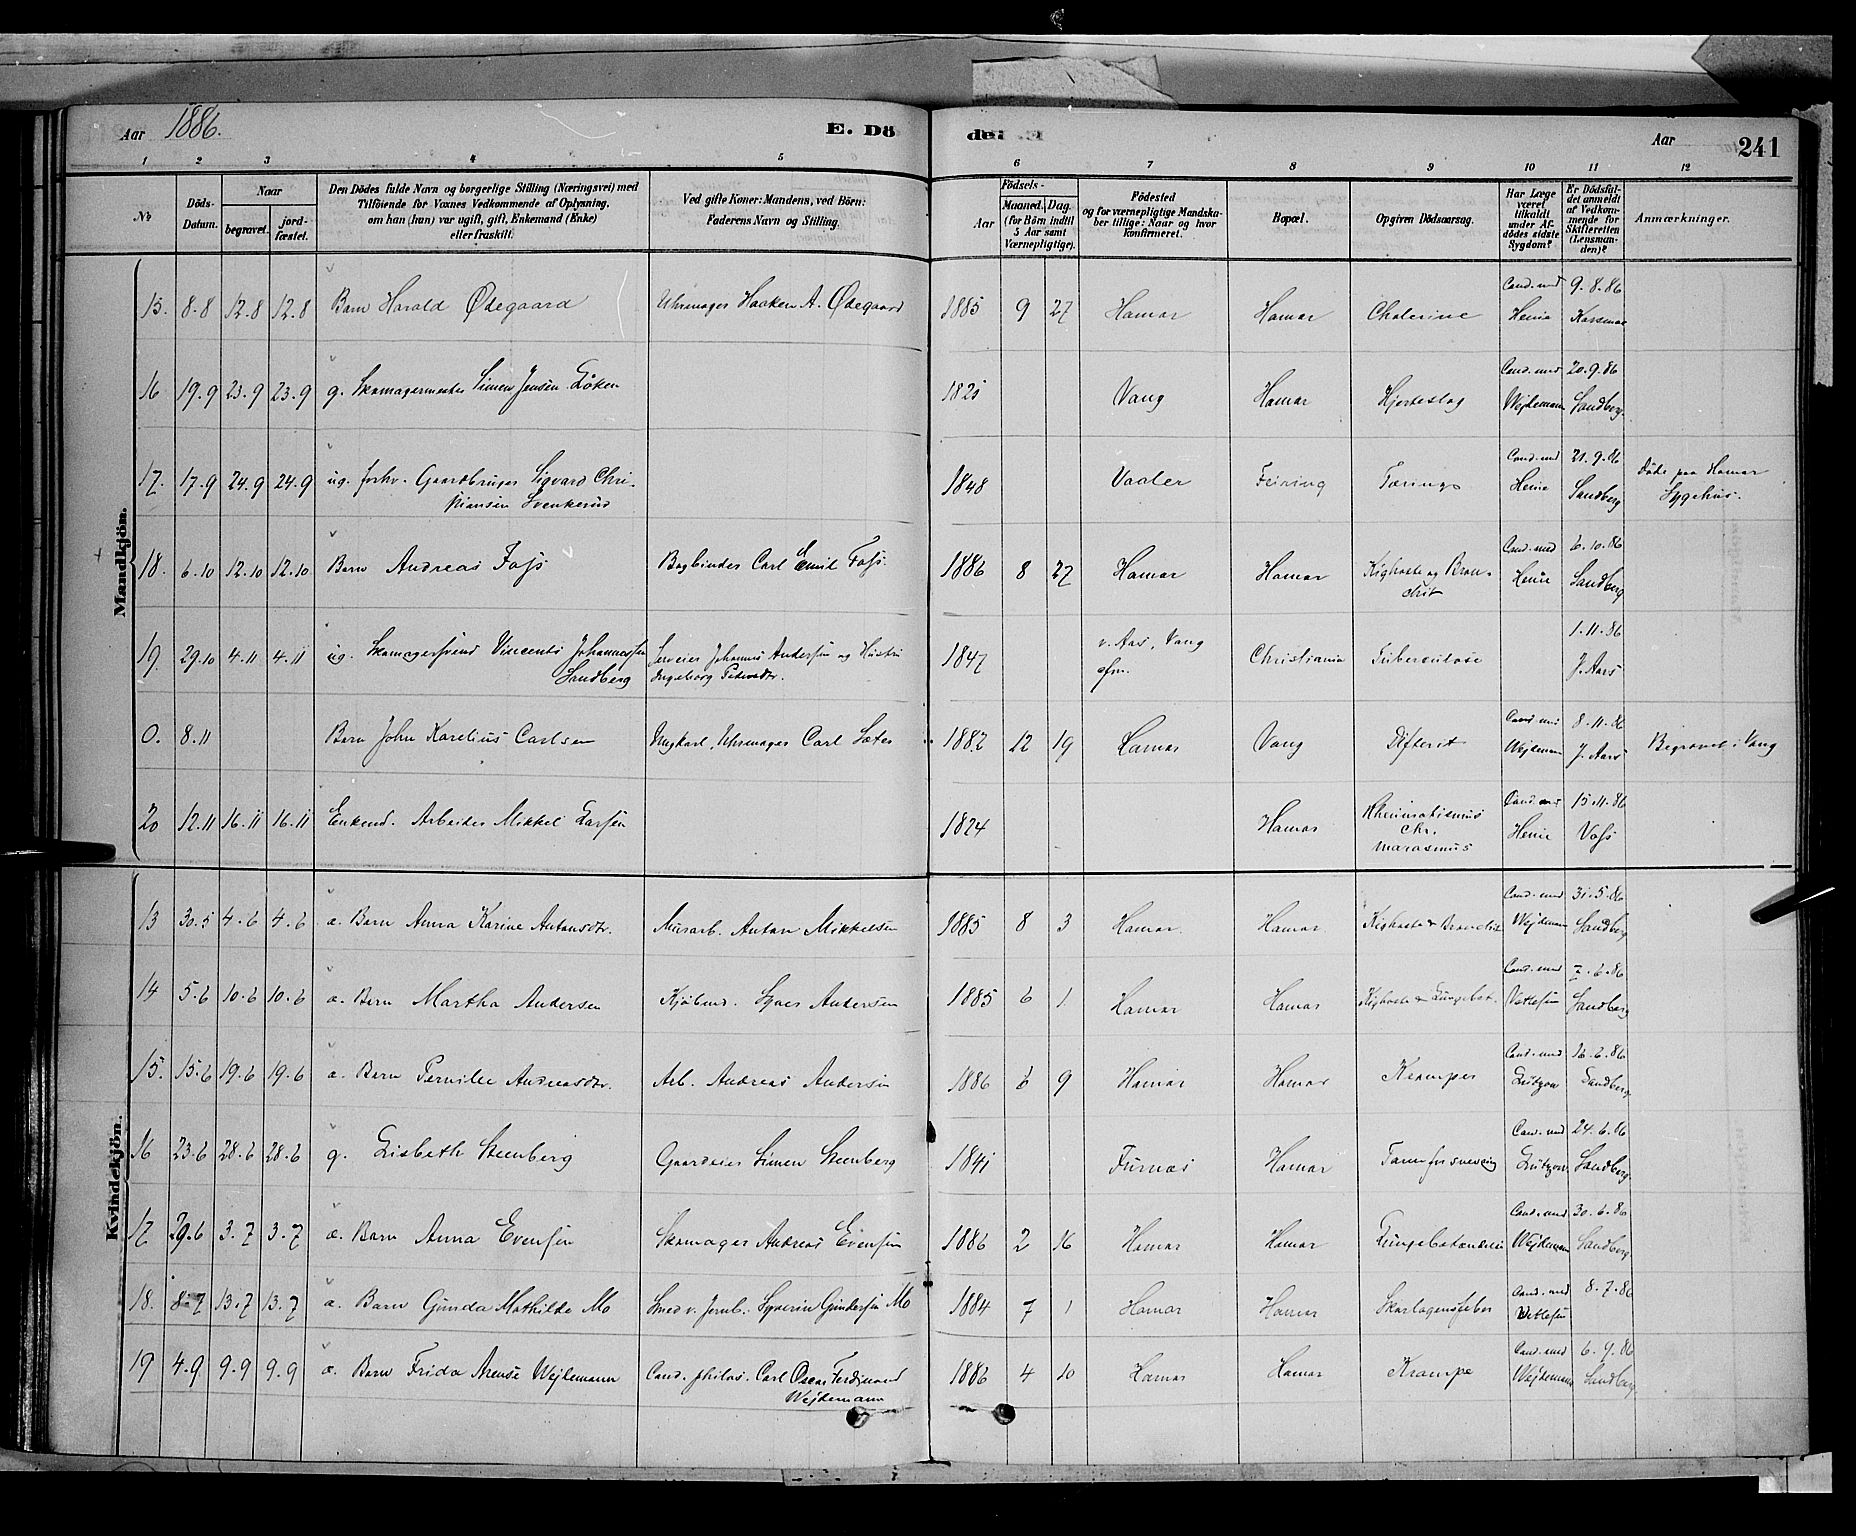 Aar 1886. E. Dö
de: Aar 241
1 2 3 4 5 6 7 8 9 10 11 12
No
Döds-Datum.
Naar
begravet.
jordfæstet.
Den Dödes fulde Navn og borgerlige Stilling (Næringsvei) med
Tilföiende for Voxnes Vedkommende af Oplysning,
om han (hun) var ugift, gift, Enkemand (Enke)
eller fraskilt.
Ved gifte Koner: Mandens, ved Börn:
Faderens Navn og Stilling.
Födsels-
Aar
Maaned. Dag.
(for Börn indtil
5 Aar samt
Værnepligtige).
Födested
og for værnepligtige Mandskaber tillige: Naar og hvor
konfirmeret.
Bopæl.
Opgiven Dödsaarsag.
Har Læge
været
tilkaldt
under Afdödes sidste
Sygdom?
Er Dödsfaldet anmeldt
af Vedkommende for
Skifteretten
(Lensmanden)?
Anmærkninger.
Mandkjön.
15. 8.8 12.8 12.8 Barn Harald Ødegaard Uhrmager Haaken A. Ødegaard 1885 9 27 Hamar Hamar Cholerine Cand. med Henie 9.8.86
16 19.9 23.9 23.9 g. Skomagermester Simen Jensen Løken 182 Vang Hamar Hjerteslag Cand. med Wejdemann 20.9.86 Sandberg
17. 17.9 24.9 24.9 ug. forhv. Gaardbruger Sigvard Christiansen Svenkerud 1848 Vaaler Feiring Tæring Cand. med Henie 21.9.86 Sandberg Døde paa Hamar Sygehus.
18. 6.10 12.10 12.10 Barn Andreas Foss Bogbinder Carl Emil Foss. 1886 8 27 Hamar Hamar Kighoste og Bronchit Cand. med Henie 6.10.86 Sandberg
19. 29.10 4.11 4.11 ug. Skomagersvend Vincents Johannessen Sandberg Johannes Andersen og Hustru Ingeborg 1847 v. Aas, Vang Christiania Tuberculose 1.11.86 J. Aars
0. 8.11 Barn John Karelius Carlsen Ungkarl, Uhrmager Carl Sæter 1882 12 19 Hamar Vang Difterit Cand. med Wejdemann 8.11.86 J. Aars Begravet i Vang
20 12.11 16.11 16.11 Enkemd. Arbeider Mikkel Larsen 1824 Hamar Rheumatismus chr. marasmus Cand. med Henie 15.11.86 Voss
Kvindekjön.
13 30.5 4.6 4.6 æ. Barn Anna Karine Antonsdtr. Murarb. Anton Mikkelsen 1885 8 3 Hamar. Hamar Kighoste & Bronchit Cand. med Wejdemann 31.5.86 Sandberg
14 5.6 10.6 10.6 æ. Barn Martha Andersen Kjøbmd. Syver Andersen 1885 6 1. Hamar Hamar Kighoste & Lungebet. Cand. med Vetlesen 7.6.86 Sandberg
15. 15.6 19.6 19.6 æ. Barn Pernille Andreasdtr. Arb. Andreas Andersen 1886 6 9 Hamar Hamar Kramper Cand. med Lützow 16.6.86 Sandberg
16 23.6 28.6 28.6 g. Lisbeth Steenberg Gaardeier Simen Steenberg 1841 Furnæs Hamar Cand. med Lützow 24.6.86 Sandberg
17 29.6 3.7 3.7 æ. Barn Anna Evensen Skomager Andreas Evensen 1886 2 16 Hamar Hamar Lungebetændelse Cand. med Wejdemann 30.6.86 Sandberg
18. 8.7 13.7 13.7 æ. Barn Gunda Mathilde Mo Smed v. Jernb. Syverin Gundersen Mo 1884 7 1 Hamar Hamar Skarlagensfeber Cand. med Vetlesen 8.7.86
19 4.9 9.9 9.9 æ. Barn Frida Wejdemann Cand. philos. Carl Oscar Ferdinand Wejdemann 1886 4 10 Hamar Hamar Krampe Cand. med Wejdemann 6.9.86 Sandberg